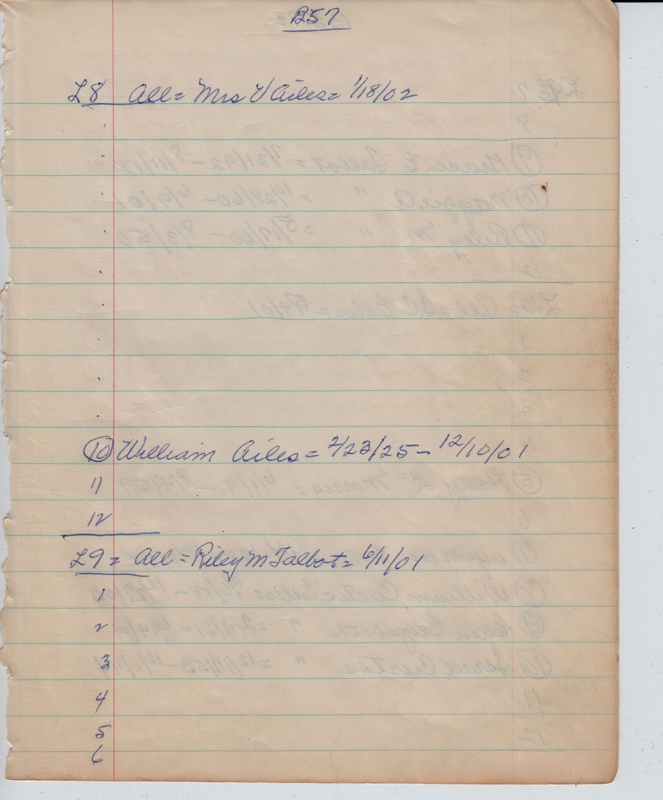 B57
L8 All = Mrs V Ailes = 1/18/02
10 William Ailes = 2/23/25 - 12/10/01
11
12
L9 = All = Riley M Talbot = 6/11/01
1
2
3
4
5
6